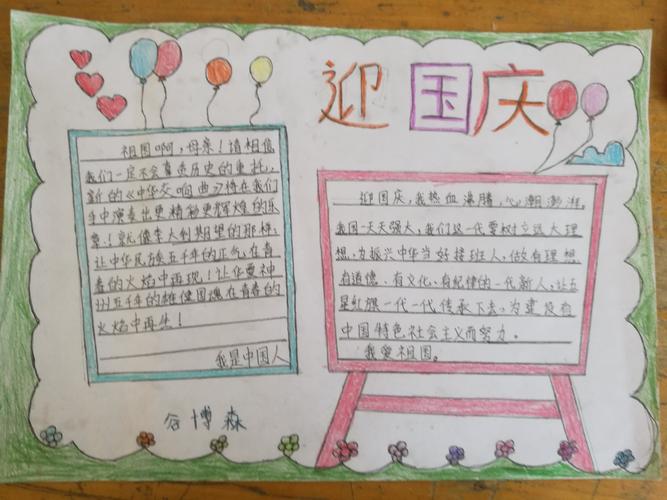 迎国庆
祖国啊,母亲!请相信
我们一定不会辜负历史的重托,
新的《中华交响曲》将在我们
手中演奏出更精彩更辉煌的乐
章!就像李大钊期望的那样:
让中华民族五千年的正气在青
春的火焰中再现!让华夏神
州五千年的雄健国魂在青春的
火焰中再生!
我是中国人
谷博森
迎国庆,我热血沸腾,心潮澎湃,
我国一天天强大,我们这一代要树立远大理
想,为振兴中华当好接班人,做有理想
有道德、有文化、有纪律的一代新人,让五
星红旗一代一代传承下去,为建设有
中国特色社会主义而努力。
我爱祖国。